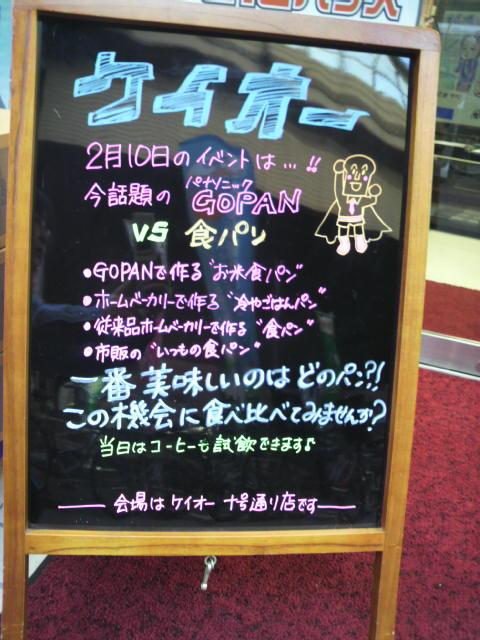 ケイオー
2月10日のイベントは…!!
パナソニック
今話題の GOPAN
VS 食パン
•GOPANで作る"お米食パン"
•ホームベーカリーで作る"冷やごはんパン"
•従来品ホームベーカリーで作る"食パン"
•市販の"いつもの食パン"
一番美味しいのはどのパン?!
この機会に食べ比べてみませんか?
当日はコーヒーも試飲できます♪
会場はケイオー 十号通り店です